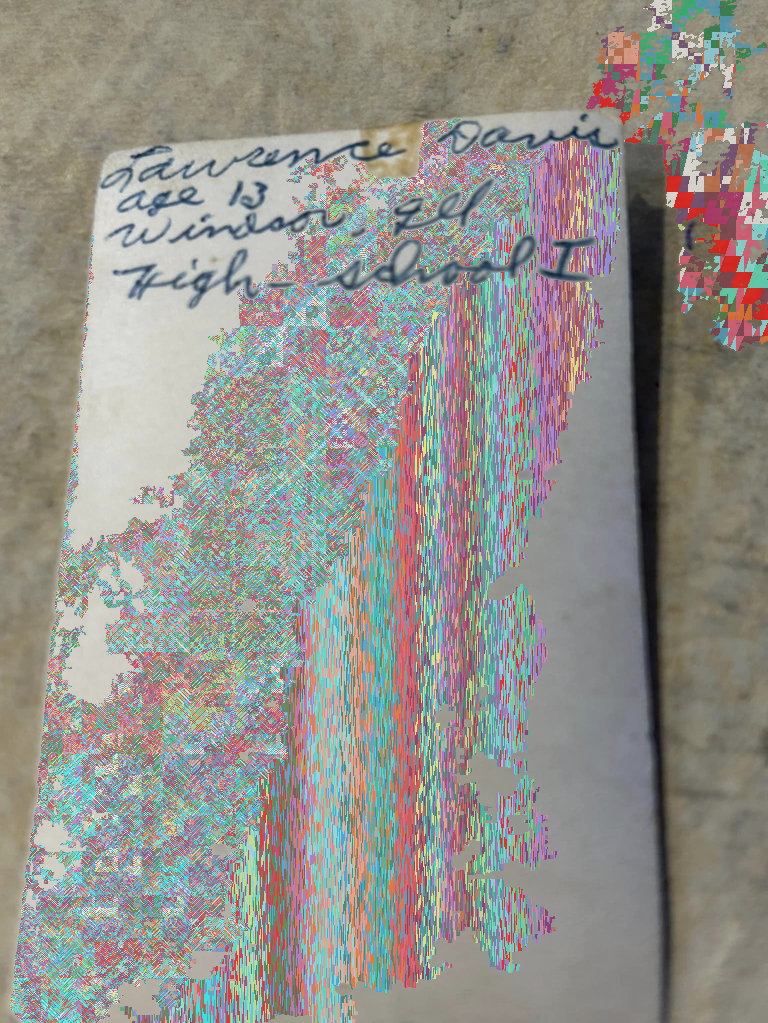 Lawrence Davis
age 13
Windsor, Ill
High - school I